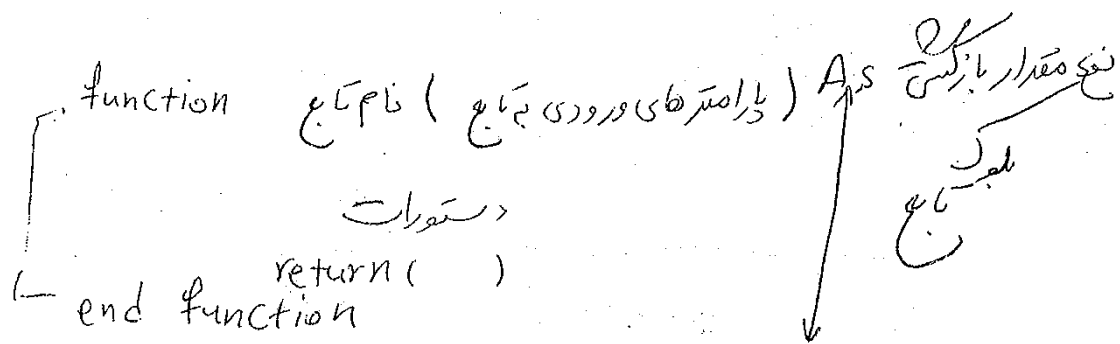 function نام تابع ( پارامترهای ورودی به تابع ) As نوع مقدار بازگشتی
بلوک
تابع
دستورات
return( )
end function